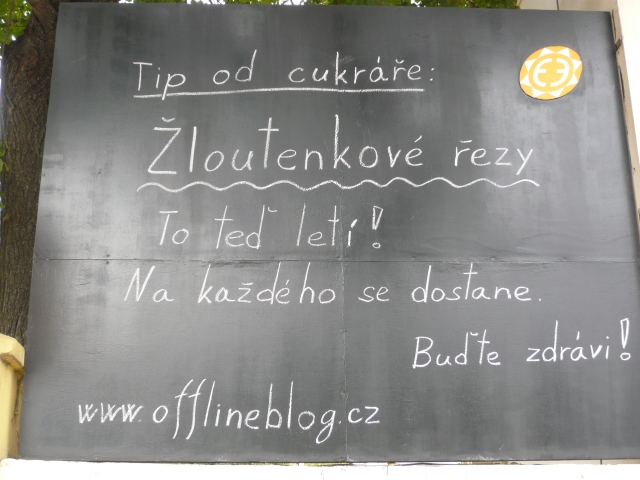 Tip od cukráře:
Žloutenkové řezy
To teď letí!
Na každého se dostane.
Buďte zdrávi!
www.offlineblog.cz